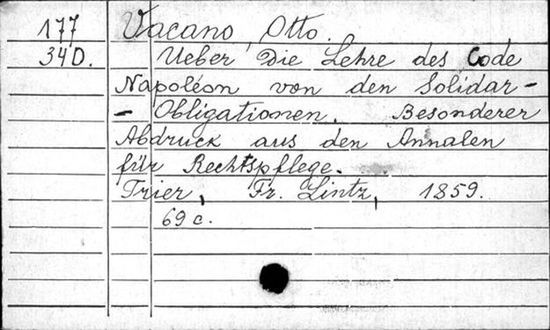 177 Vacano, Otto.
34D. Ueber Die Lehre des Code
Napoléon von den Solidar-
- Obligationen. Besonderer
Abdruck aus den Annalen
für Rechtspflege.
Trier, Fr. Lintz, 1859.
69 c.